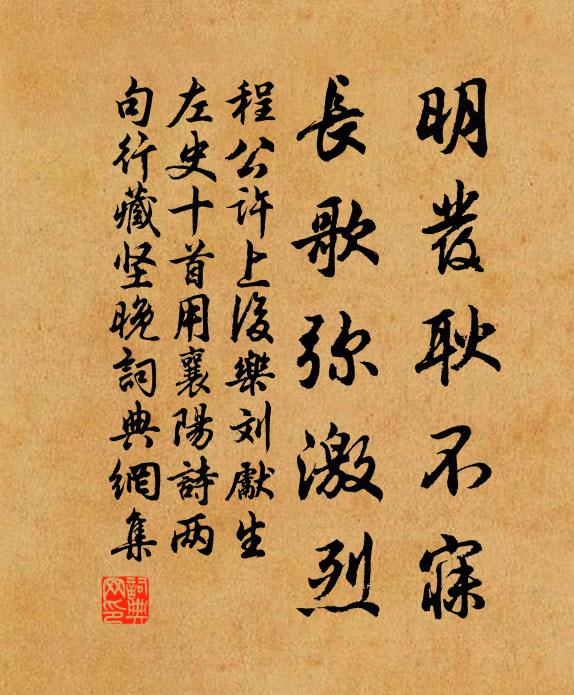 明發耿不寐
長歌弥激烈
程公許上後樂刘獻生
左史十首用襄陽詩两
句行藏坚晚詞典網集
詞典网印